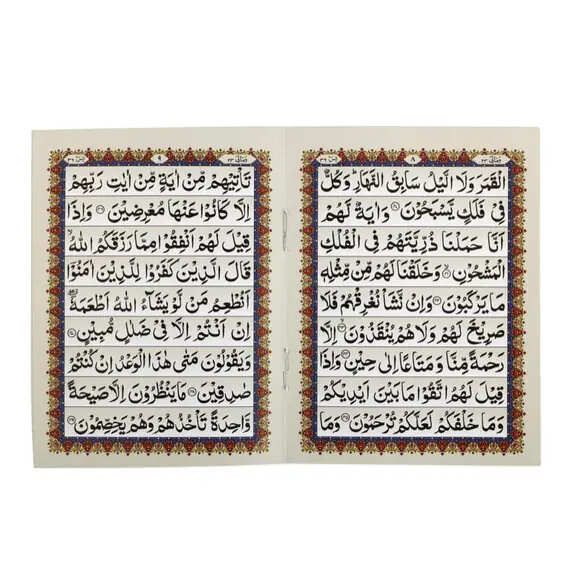 يٰسٓ ٣٦ ٨ ومالي ٢٣
الْقَمَرَ وَلَا الَّيْلُ سَابِقُ النَّهَارِ ؕ وَكُلٌّ
فِيْ فَلَكٍ يَّسْبَحُوْنَ ﴿٤٠﴾ وَاٰيَةٌ لَّهُمْ
اَنَّا حَمَلْنَا ذُرِّيَّتَهُمْ فِي الْفُلْكِ
الْمَشْحُوْنِ ﴿٤١﴾ وَخَلَقْنَا لَهُمْ مِّنْ مِّثْلِهٖ
مَا يَرْكَبُوْنَ ﴿٤٢﴾ وَاِنْ نَّشَاْ نُغْرِقْهُمْ فَلَا
صَرِيْخَ لَهُمْ وَلَا هُمْ يُنْقَذُوْنَ ﴿٤٣﴾ اِلَّا
رَحْمَةً مِّنَّا وَمَتَاعًا اِلٰى حِيْنٍ ﴿٤٤﴾ وَاِذَا
قِيْلَ لَهُمُ اتَّقُوْا مَا بَيْنَ اَيْدِيْكُمْ
وَمَا خَلْفَكُمْ لَعَلَّكُمْ تُرْحَمُوْنَ ﴿٤٥﴾ وَمَا
يٰسٓ ٣٦ ٩ ومالي ٢٣
تَاْتِيْهِمْ مِّنْ اٰيَةٍ مِّنْ اٰيٰتِ رَبِّهِمْ
اِلَّا كَانُوْا عَنْهَا مُعْرِضِيْنَ ﴿٤٦﴾ وَاِذَا
قِيْلَ لَهُمْ اَنْفِقُوْا مِمَّا رَزَقَكُمُ اللّٰهُ ۙ
قَالَ الَّذِيْنَ كَفَرُوْا لِلَّذِيْنَ اٰمَنُوْۤا
اَنُطْعِمُ مَنْ لَّوْ يَشَآءُ اللّٰهُ اَطْعَمَهٗۤ ۖ
اِنْ اَنْتُمْ اِلَّا فِيْ ضَلٰلٍ مُّبِيْنٍ ﴿٤٧﴾
وَيَقُوْلُوْنَ مَتٰى هٰذَا الْوَعْدُ اِنْ كُنْتُمْ
صٰدِقِيْنَ ﴿٤٨﴾ مَا يَنْظُرُوْنَ اِلَّا صَيْحَةً
وَّاحِدَةً تَاْخُذُهُمْ وَهُمْ يَخِصِّمُوْنَ ﴿٤٩﴾